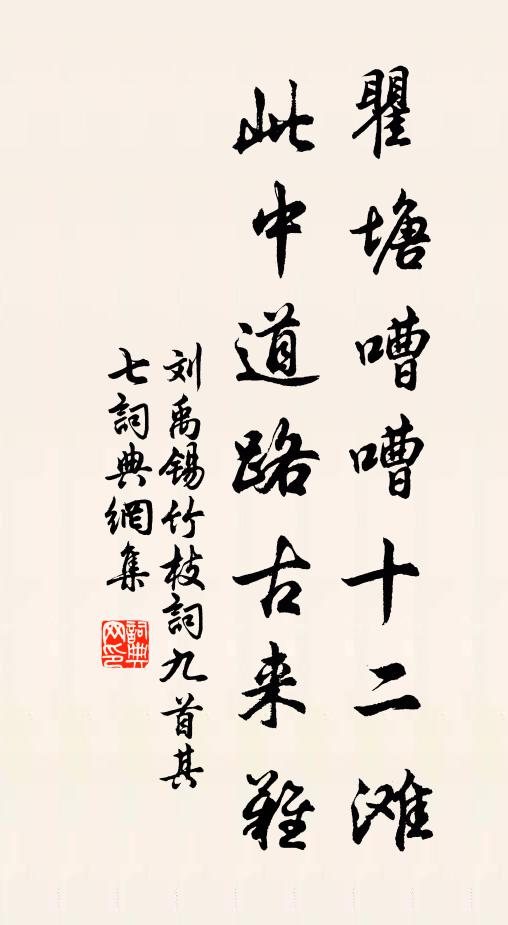 瞿塘嘈嘈十二滩
此中道路古来難
刘禹锡竹枝詞九首其
七詞典網集
詞典
网印